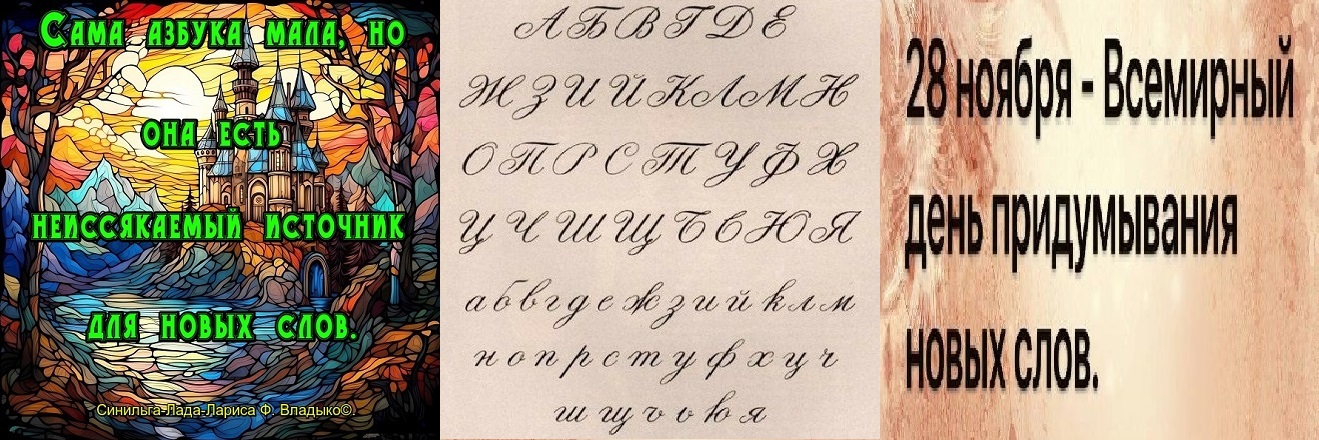 Сама азбука мала, но
она есть
неиссякаемый источник
для новых слов.
Синильга-Лада-Лариса Ф. Владыко©.
А Б В Г Д Е
Ж З И Й К Л М Н
О П Р С Т У Ф Х
Ц Ч Ш Щ Ъ Ь Ю Я
а б в г д е ж з и й к л м
н о п р с т у ф х ц ч
ш щ ъ ь ю я
28 ноября - Всемирный
день придумывания
новых слов.